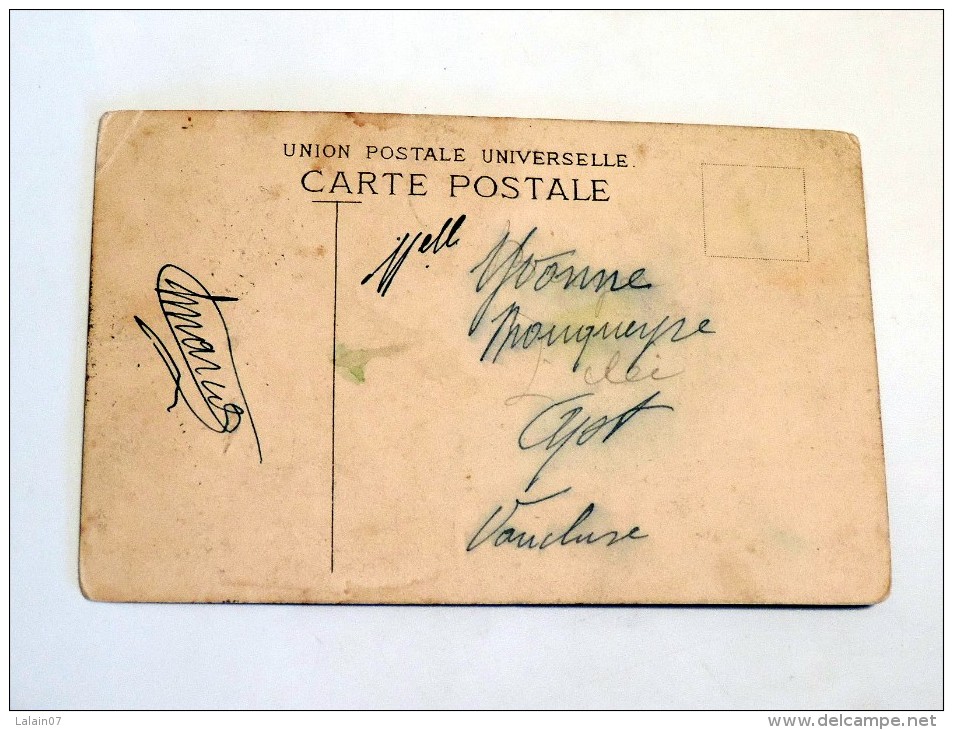 UNION POSTALE UNIVERSELLE.
CARTE POSTALE
Melle Yvonne
Mouqueyre
Apt
Vaucluse
Lalain07
www.delcampe.net